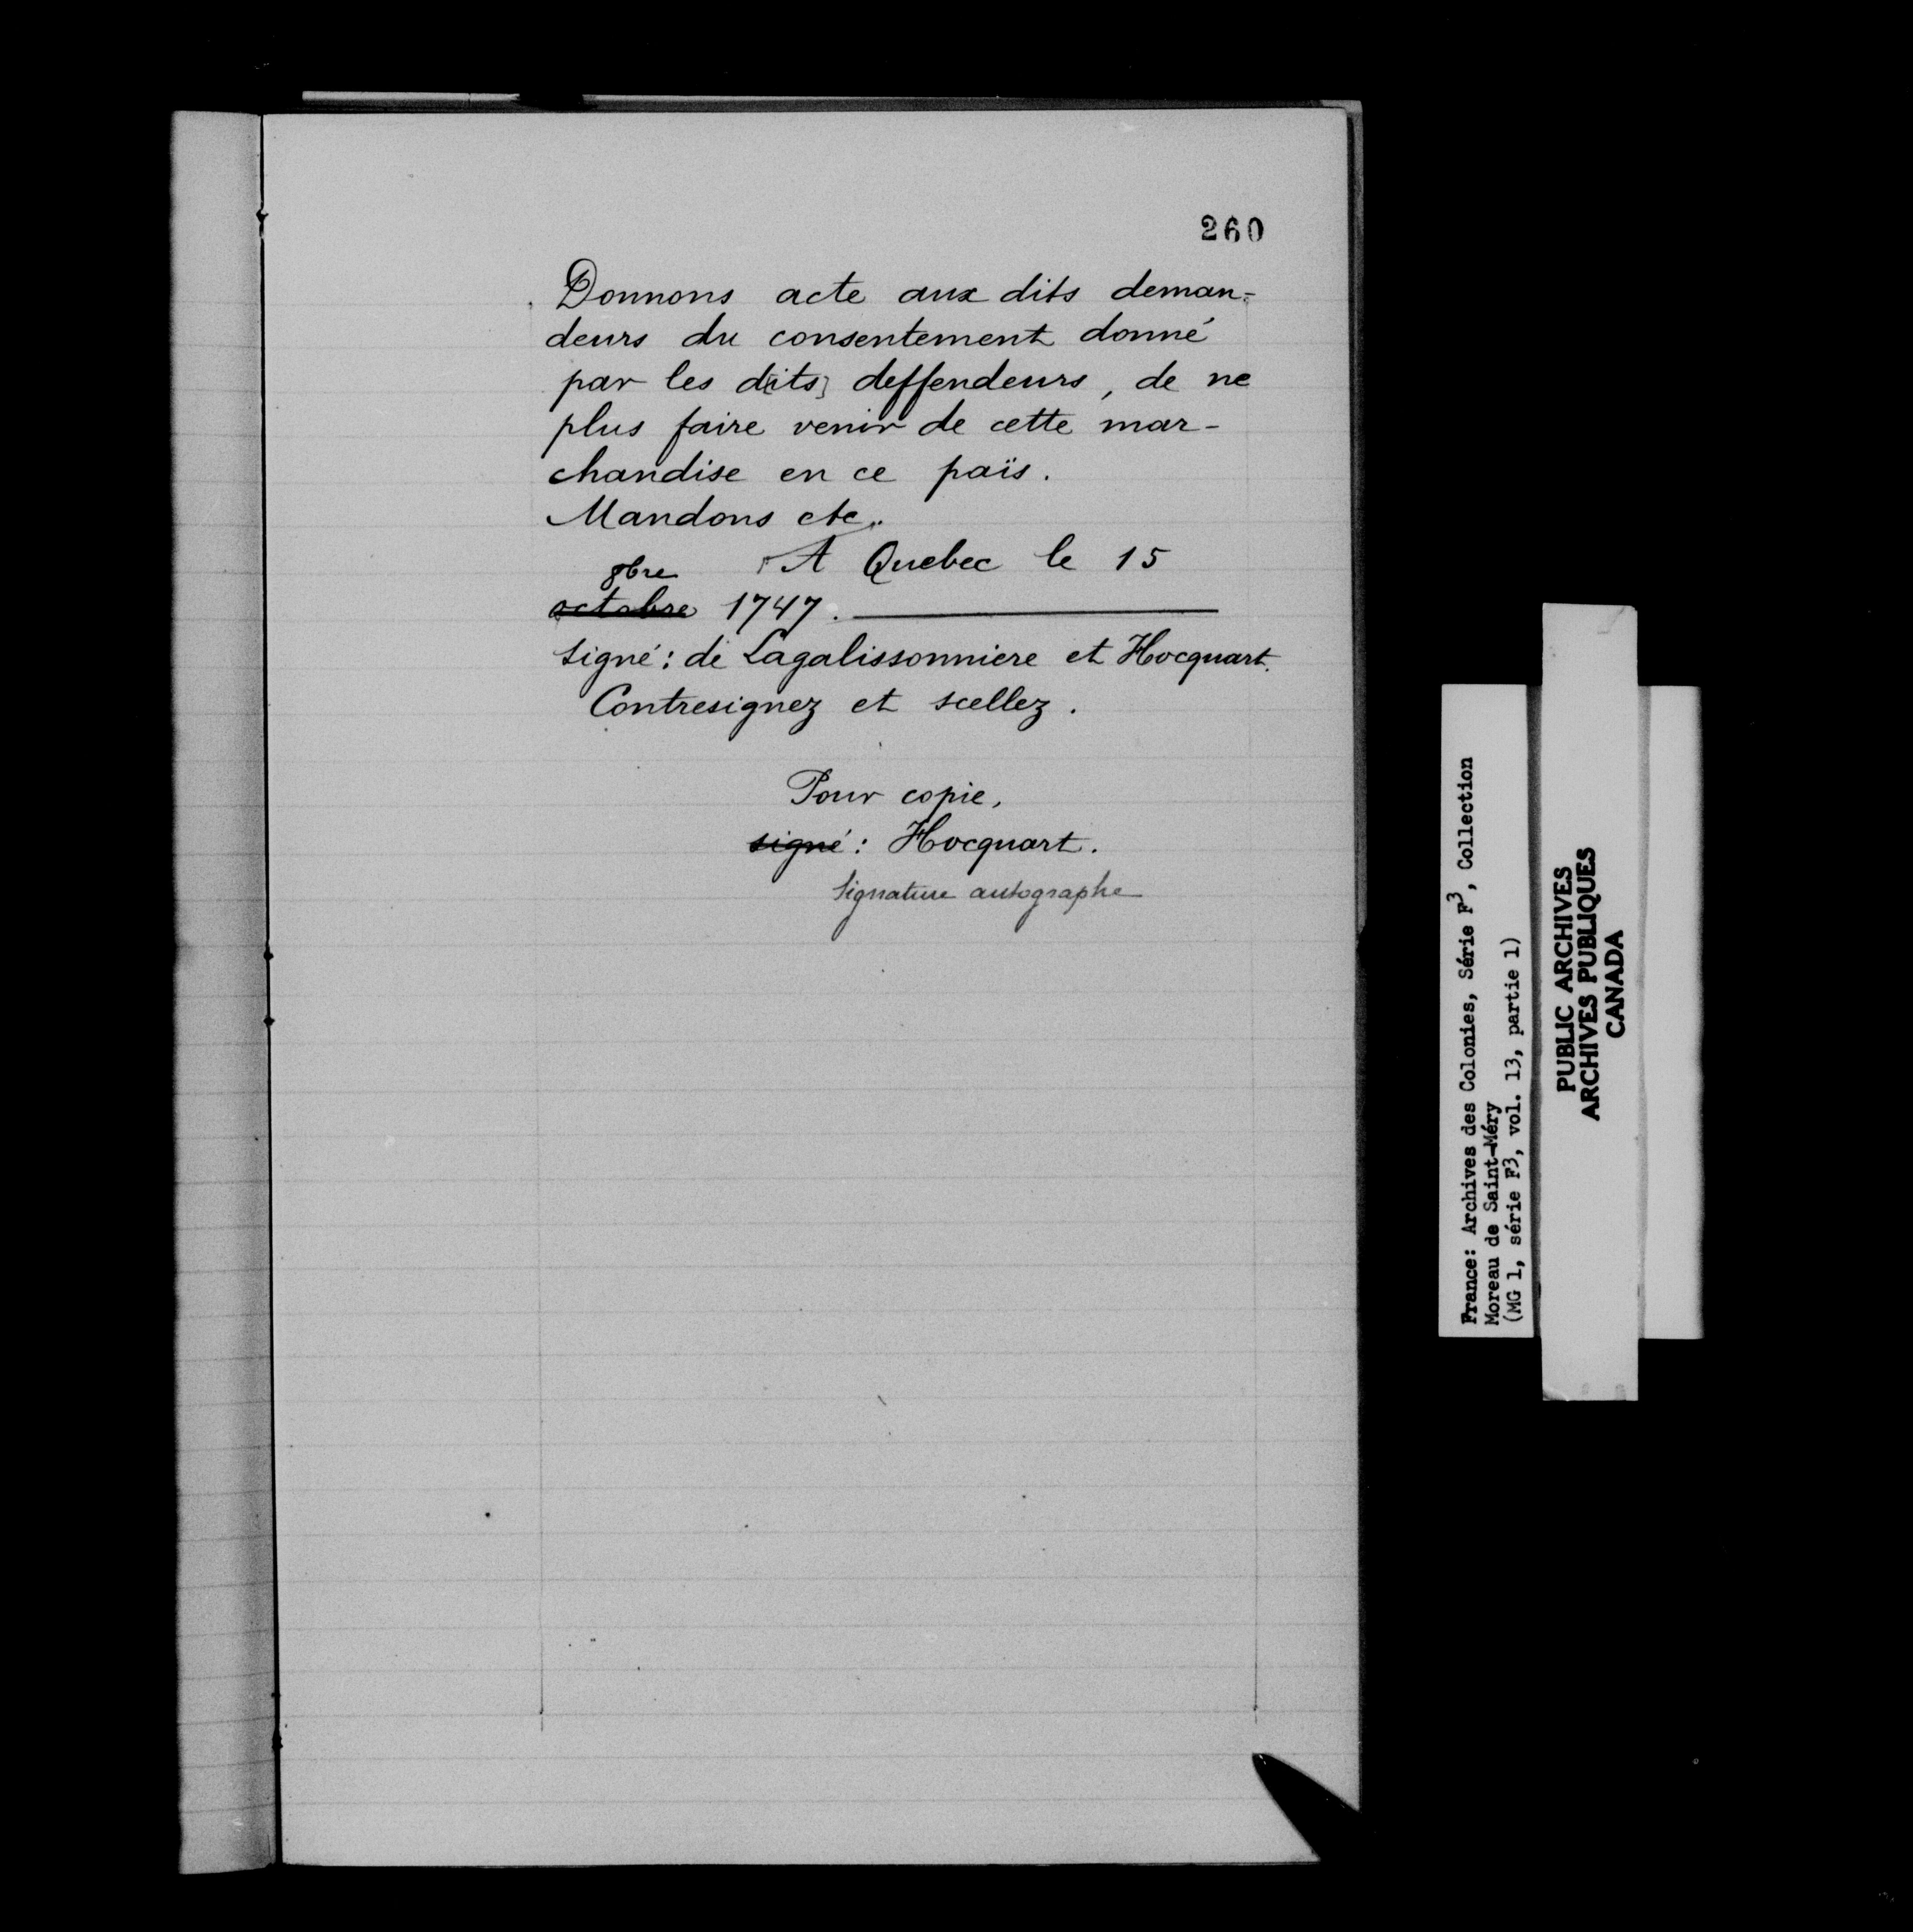 260
Donnons acte aux dits deman-
deurs du consentement donné
par les d[its] deffendeurs, de ne
plus faire venir de cette mar-
chandise en ce païs.
Mandons etc..
A Quebec le 15
8bre
octobre 1747.
signé: de Lagalissonniere et Hocquart.
Contresignez et scellez.
Pour copie,
signé: Hocquart.
Signature autographe
France: Archives des Colonies, Série F3, Collection
Moreau de Saint-Méry
(MG 1, série F3, vol. 13, partie 1)
PUBLIC ARCHIVES
ARCHIVES PUBLIQUES
CANADA